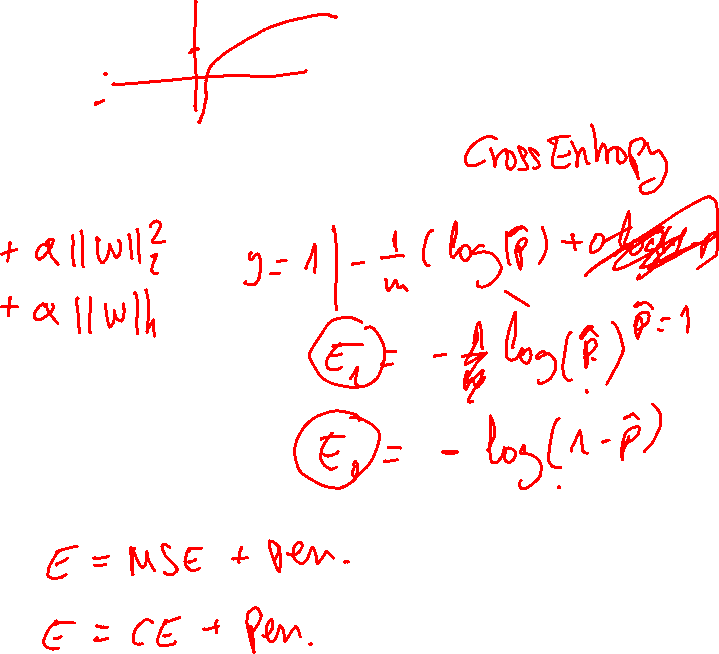 Cross Entropy
+ α ||w||₂²
y = 1 | - 1/m (log(p̂) +
+ α ||w||₁
E₁ = - log(p̂) p̂ = 1
E₀ = - log(1 - p̂)
E = MSE + Pen.
E = CE + Pen.